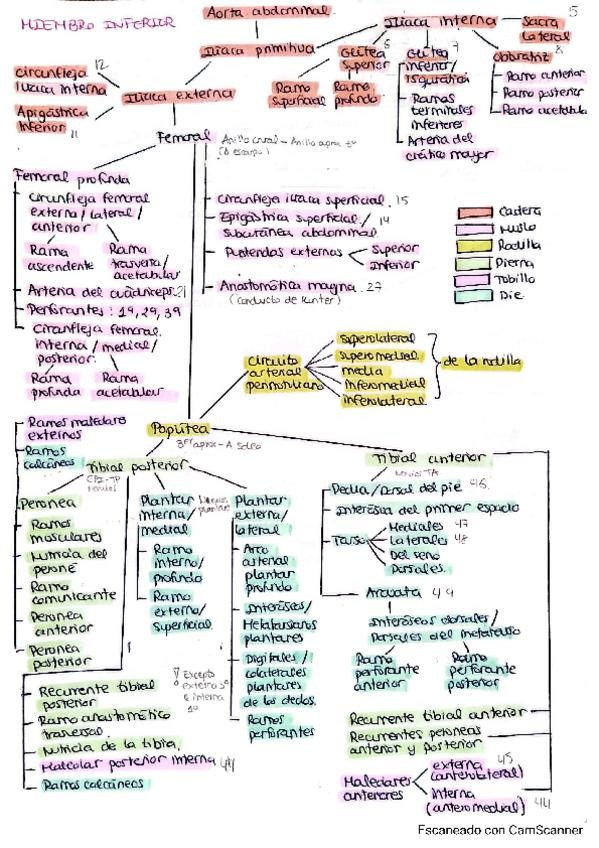 MIEMBRO INFERIOR
Aorta abdominal
Iliaca primitiva
Iliaca interna
5
Sacra
lateral
6
Glútea
superior
Ramo
superficial
Ramo
profundo
7
Glútea
inferior/
isquiática
Ramas
terminales
inferiores
Arteria del
ciático mayor
8
Obturatriz
Ramo anterior
Ramo posterior
Ramo acetabular
Circunfleja
iliaca interna
12
Apigástrica
inferior
11
Iliaca externa
Femoral
Anillo crural - Anillo
Femoral profunda
Circunfleja femoral
externa/lateral/
anterior
Rama
ascendente
Rama
trasversa/
acetabular
Arteria del cuádriceps 21
Perforantes: 1ª, 2ª, 3ª
Circunfleja femoral
interna/medial/
posterior.
Rama
profunda
Rama
acetabular
Circunfleja iliaca superficial. 15
Epigástrica superficial/ 14
subcutánea abdominal
Pudendas externas
Superior
Inferior
Anastomótica magna. 27
(conducto de Hunter)
Cadera
Muslo
Rodilla
Pierna
Tobillo
Pie
Circuito
arterial
perirrotuliano
superolateral
superomedial
media
inferomedial
inferolateral
de la rodilla
Poplítea
Ramos maleolares
externos
Ramos
calcáneos
Tibial posterior
Peronea
Ramos
musculares
Nutricia del
peroné
Ramo
comunicante
Peronea
anterior
Peronea
posterior
Plantar
interna/
medial
Ramo
interno/
profundo
Ramo
externo/
superficial.
Plantar
externa/
lateral
Arco
arterial
plantar
profundo
Interóseos/
Metatarsianos
plantares
Digitales/
colaterales
plantares
de los dedos.
Ramos
perforantes
Excepto
externa 5º
e interna
1º
Recurrente tibial
posterior
Ramo anastomótico
transverso.
Nutricia de la tibia.
Maleolar posterior interna 44
Ramos calcáneos
Tibial anterior
Pedia/Dorsal del pie 46
Interósea del primer espacio
Tarso
Mediales 47
Laterales 48
Del seno
Dorsales.
Arcuata 49
Interóseos dorsales/
Dorsales del metatarso
Ramo
perforante
anterior
Ramo
perforante
posterior
Recurrente tibial anterior
Recurrentes peroneas
anterior y posterior
Maleolares
anteriores
externa 45
(anterolateral)
Interna
(anteromedial) 44
Escaneado con CamScanner